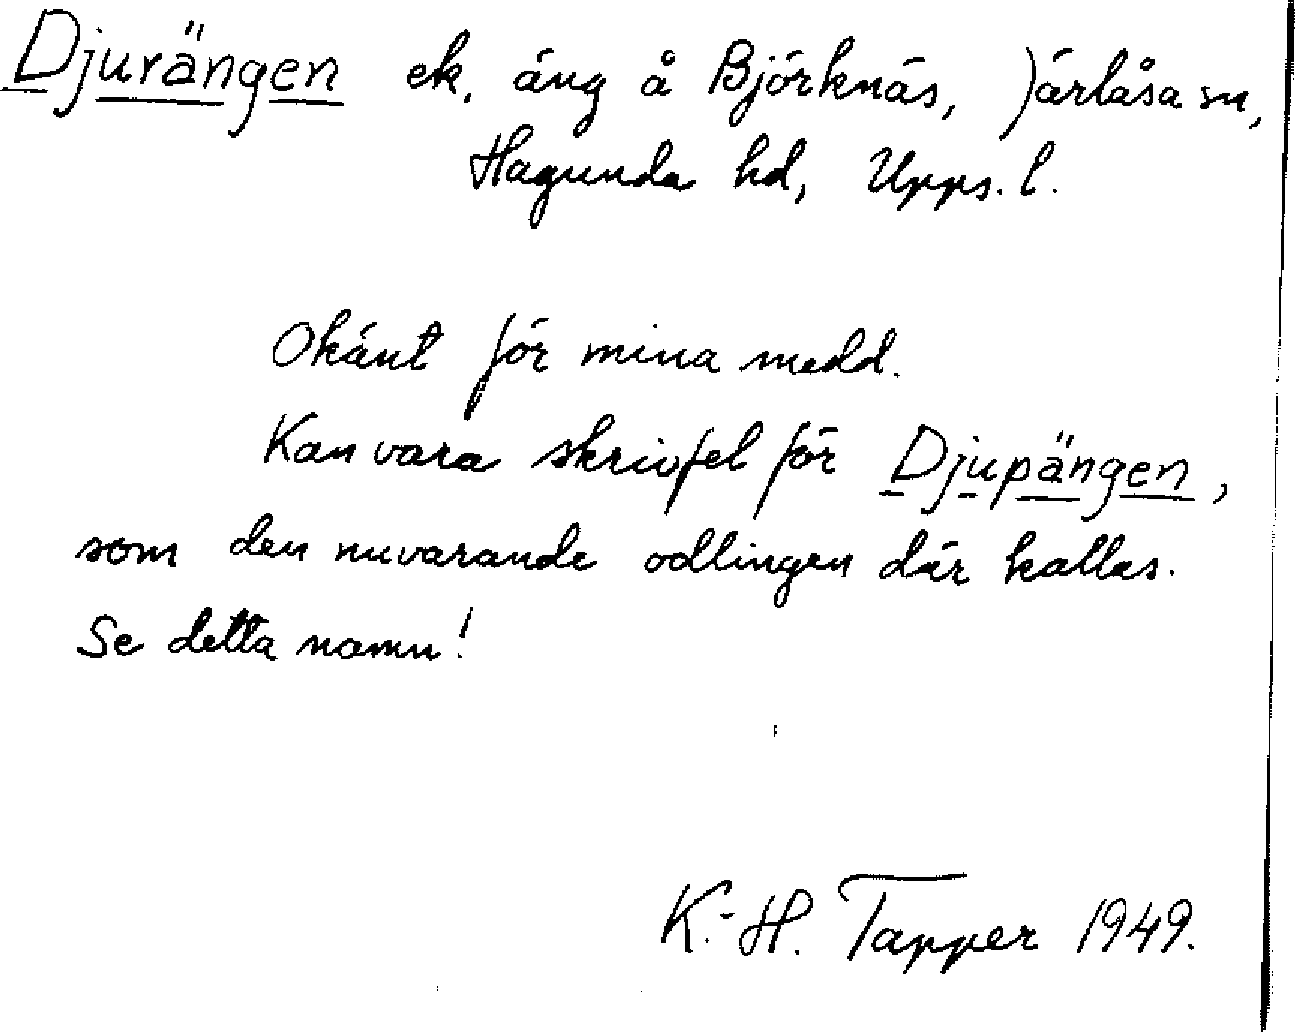 Djurängen ek. äng å Björknäs, Järlåsa sn,
Hagunda hd, Upps. l.
Okänt för mina medd.
Kan vara skrivfel för Djupängen,
som den nuvarande odlingen där kallas.
Se detta namn!
K.-H. Tapper 1949.